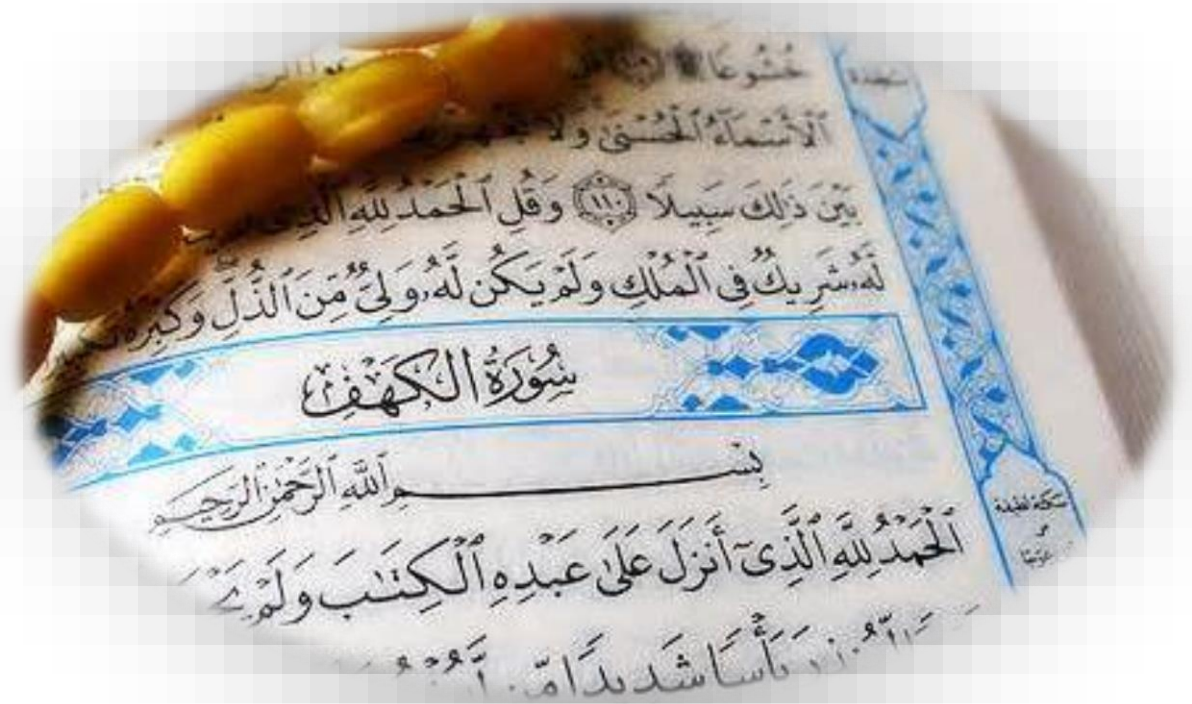 خُشُوعًا
ٱلْأَسْمَآءُ ٱلْحُسْنَىٰ وَلَا
بَيْنَ ذَٰلِكَ سَبِيلًا ١١٠ وَقُلِ ٱلْحَمْدُ لِلَّهِ ٱلَّذِى
لَّهُۥ شَرِيكٌ فِى ٱلْمُلْكِ وَلَمْ يَكُن لَّهُۥ وَلِىٌّ مِّنَ ٱلذُّلِّ وَكَبِّرْهُ
سُورَةُ الكَهْفِ
بِسْمِ ٱللَّهِ ٱلرَّحْمَٰنِ ٱلرَّحِيمِ
ٱلْحَمْدُ لِلَّهِ ٱلَّذِىٓ أَنزَلَ عَلَىٰ عَبْدِهِ ٱلْكِتَٰبَ وَلَمْ
بَأْسًا شَدِيدًا مِّن
سَجدة
سكتة لطيفة